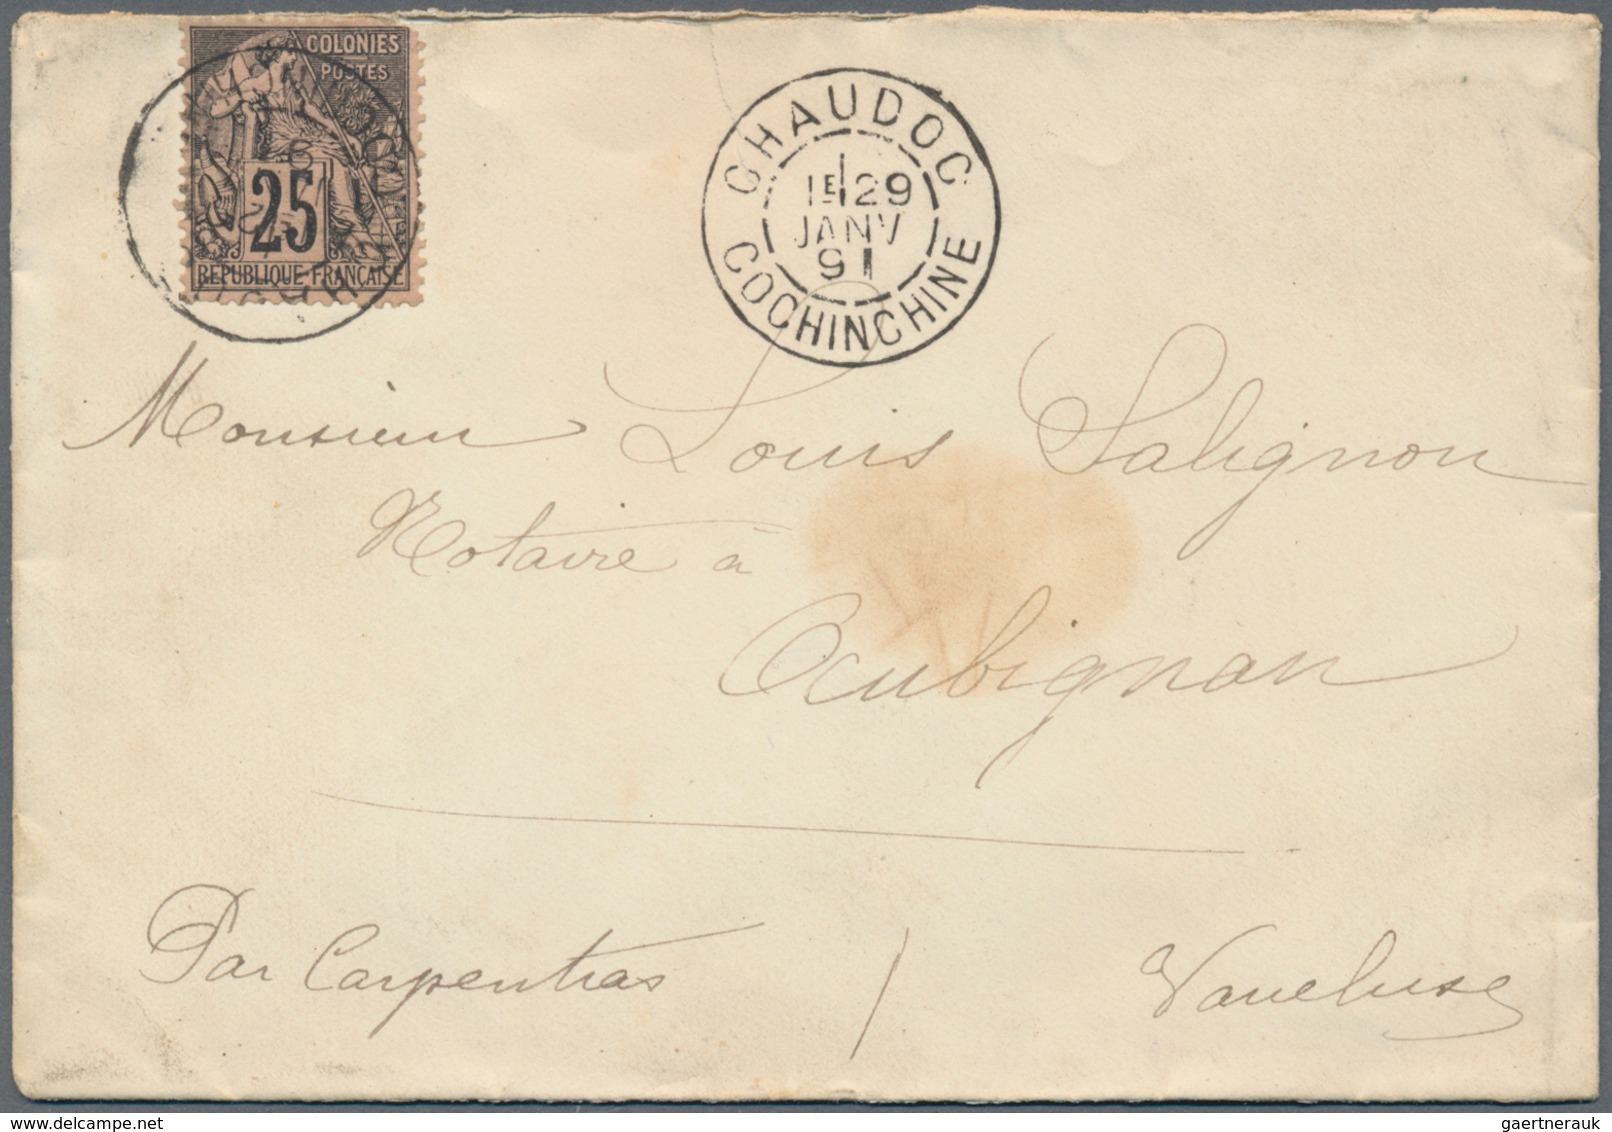 COLONIES
POSTES
25
REPUBLIQUE FRANÇAISE
CHAUDOC
1E 29
JANV
91
COCHINCHINE
Monsieur Louis Salignon
Notaire à
Aubignan
Par Carpentras / Vaucluse
gaertnerauk @ delcampe.net